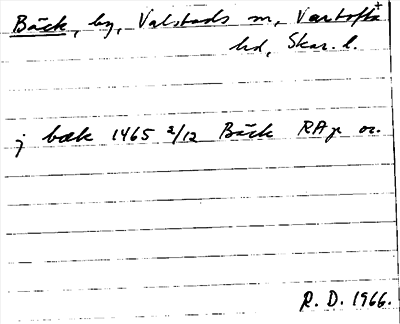 Bäck, by, Valstads sn, Vartofta
hd, Skar. l.
j bæk 1465 2/12 Bäck RAp or.
R. D. 1966.